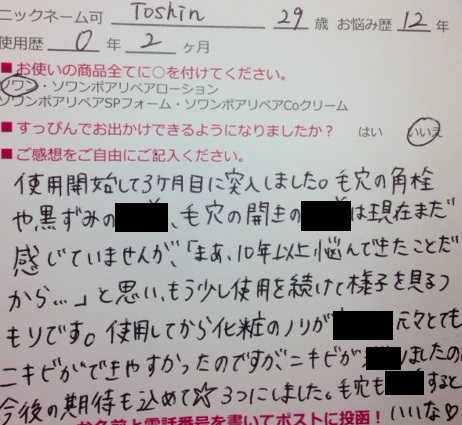 ニックネーム可 Toshin 29歳 お悩み歴 12年
使用歴 0年 2ヶ月
■お使いの商品全てに○を付けてください。
ソワン・ソワンポアリペアローション
ソワンポアリペアSPフォーム・ソワンポアリペアCoクリーム
■すっぴんでお出かけできるようになりましたか? はい いいえ
■ご感想をご自由にご記入ください。
使用開始して3ヶ月目に突入しました。毛穴の角栓
や黒ずみの、毛穴の開きのは現在まだ
感じていませんが、「まあ、10年以上悩んできたことだ
から…」と思い、もう少し使用を続けて様子を見るつ
もりです。使用してから化粧のノリが 元々とても
ニキビができやすかったのですが、ニキビがしましたの
今後の期待も込めて☆3つにしました。毛穴もすると
お名前と電話番号を書いてポストに投函! いいな♡